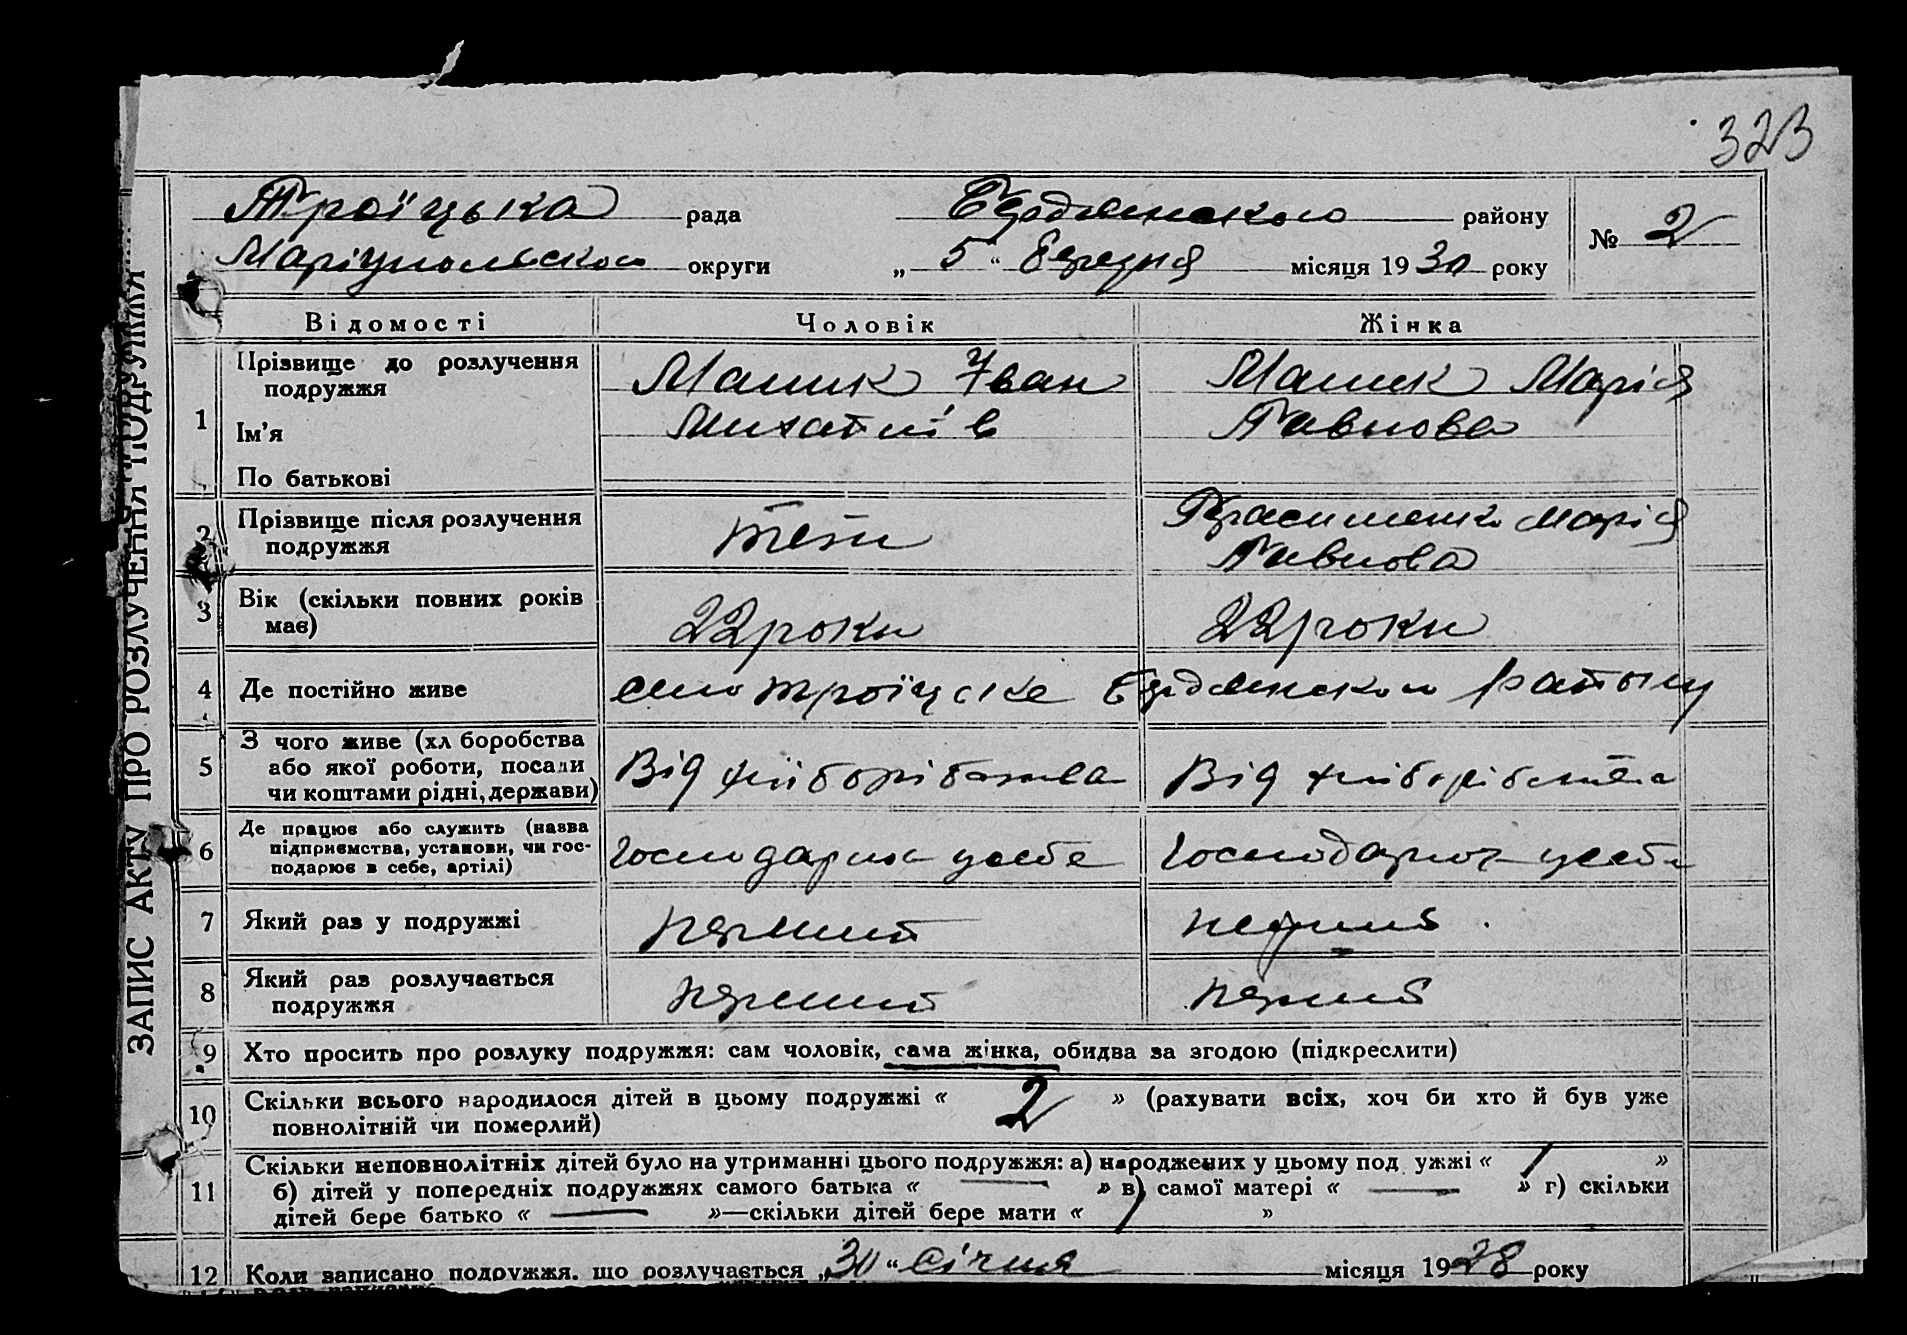 323
Троїцька рада Бердянського району
№ 2
Маріупольської округи „ 5 “ березня місяця 1930 року
ЗАПИС АКТУ ПРО РОЗЛУЧЕННЯ ПОДРУЖЖЯ
Відомості Чоловік Жінка
1 Прізвище до розлучення подружжя
Ім’я
По батькові
Машик Іван
Михайлів
Машик Марія
Павлова
2 Прізвище після розлучення
подружжя
Марія
Павлова
3 Вік (скільки повних років
має)
22 роки
22 роки
4 Де постійно живе
село Троїцьке Бердянського району
5 З чого живе (хл боробства
або якої роботи, посади
чи коштами рідні, держави)
Від хліборобства
Від хліборобства
6 Де працює або служить (назва
підприємства, установи, чи гос-
подарює в себе, артілі)
Господарює у себе
Господарює у себе
7 Який раз у подружжі
перший
перший
8 Який раз розлучається
подружжя
перший
перший
9 Хто просить про розлуку подружжя: сам чоловік, сама жінка, обидва за згодою (підкреслити)
10 Скільки всього народилося дітей в цьому подружжі « 2 » (рахувати всіх, хоч би хто й був уже
повнолітній чи померлий)
11 Скільки неповнолітніх дітей було на утриманні цього подружжя: а) народжених у цьому под ужжі « 1 »
б) дітей у попередніх подружжях самого батька « — » в) самої матері « — » г) скільки
дітей бере батько « — »—скільки дітей бере мати « 1 »
12 Коли записано подружжя, що розлучається „30“ січня місяця 1928 року